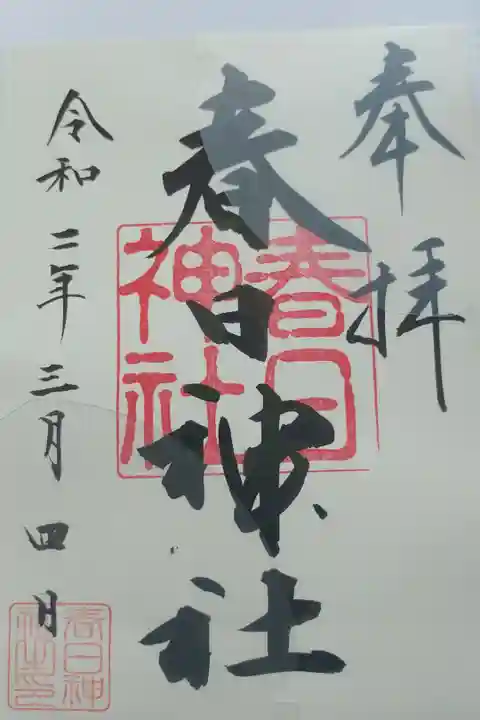 奉拝
春日神社
春日神社
令和二年三月四日
春日神社之印